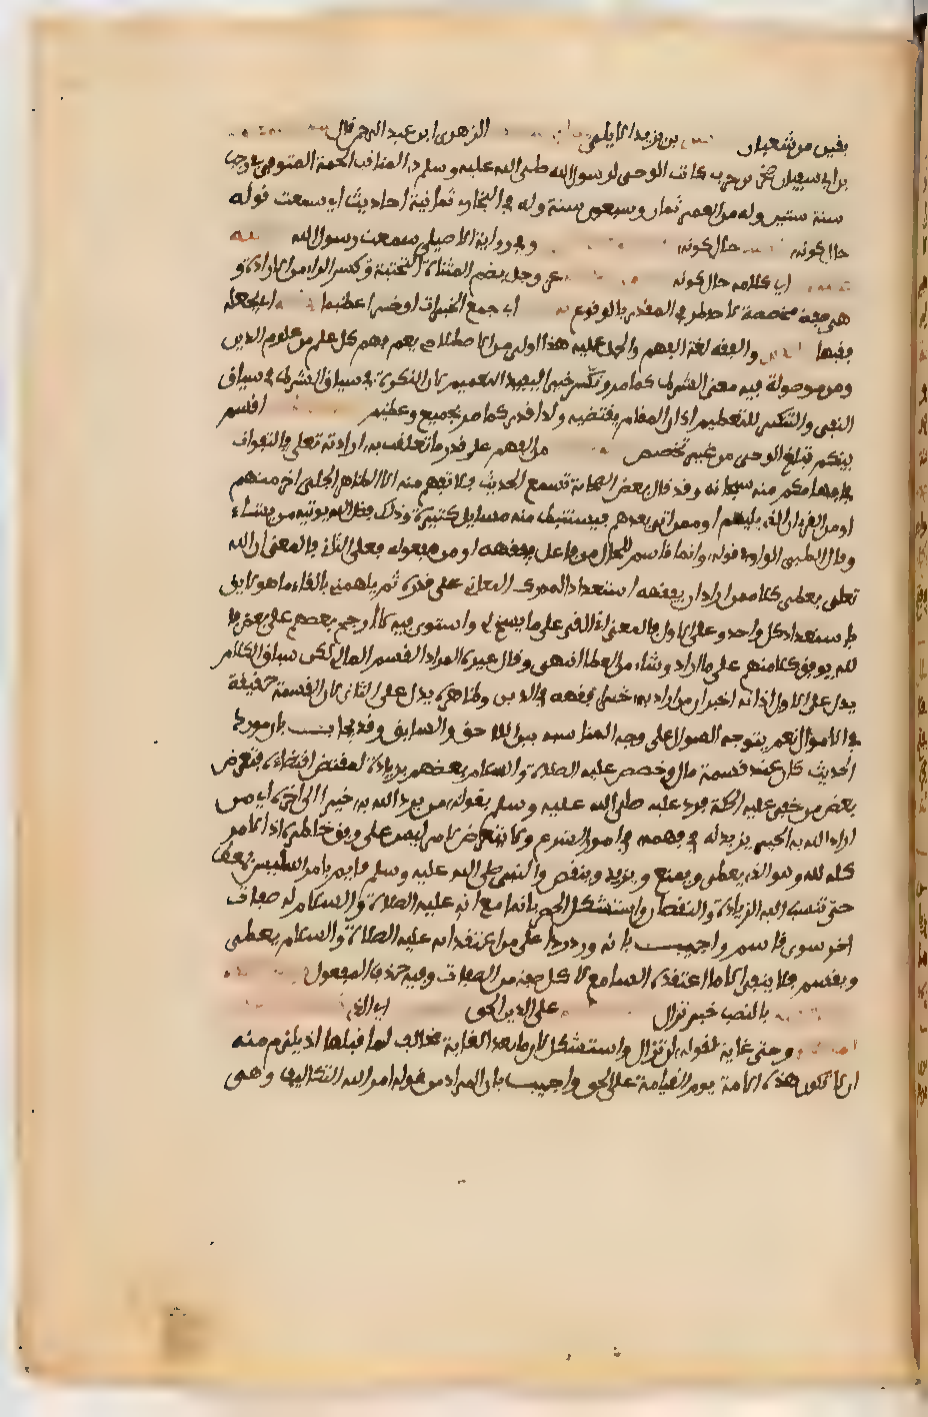 بقين من شعبان بن يزيد الايلي الزهري ابو عبد الرحمن قال
بن ابي سفيان صخر بن حرب كاتب الوحي لرسول الله صلى الله عليه وسلم ذا المناقب الجمة المتوفى في رجب
سنة ستين وله من العمر ثمان وسبعون سنة وله في البخاري ثمانية احاديث اي سمعت قوله
حال كونه حال كونه وفي رواية الاصيلي سمعت رسول الله
اي كلامه حال كونه عز وجل بضم المثناة التحتية وكسر الراء من الارادة و
هي صفة مخصصة لاحد طرفي المقدر بالوقوع اي جمع الخيرات او خيرا عظيما اي يجعله
فقيها والفقه لغة الفهم والحمل عليه هنا اولى من الاصطلاحي يعم فهم كل علم من علوم الدين
ومن موصولة فيه معنى الشرط كما مر ونكر خيرا ليفيد التعميم لان النكرة في سياق الشرط كهي في سياق
النفي والتنكير للتعظيم اذ ان المقام يقتضيه ولذا قدر كما مر بجميع وعظيم اقسم
بينكم تبليغ الوحي من غير تخصيص من الفهم على قدر ما تعلقت به ارادته تعلى فالتفاوت
في افهامكم منه سبحانه وقد كان بعض الصحابة تسمع الحديث فلا تفهم منه الا الظاهر الجلي اخر منهم
او من القرن الذي يليهم او ممن اتى بعدهم فيستنبط منه مسايل كثيرة وذلك فضل الله يوتيه من يشاء
وقال الطيبي الواو في قوله وانما قاسم للحال من فاعل يفقهه او من مفعوله فعلى الثاني فالمعنى ان الله
تعلى يعطي كلا ممن اراد ان يفقهه استعداد المدرك المعاني على قدره ثم يلهمني بالقاء ما هو لايق
باستعداد كل واحد وعلى الاول فالمعنى اني القي على ما يسنح لي واستوي فيه لا ارجح بعضهم على بعض فا
لله يوفق كلا منهم على ما اراد وشاء من العطا انتهى وقال غيره المراد القسم المالي لكن سياق الكلام
يدل على الاول اذ انه اخبر ان من اراد به خيرا يفقهه في الدين وظاهره يدل على الثاني لان القسمة حقيقة
في الاموال نعم يتوجه السوال على وجه المناسبة بين اللاحق والسابق وقد يجاب بان مورد
الحديث كان عند قسمة مال وخصص عليه الصلاة والسلام بعضهم بزيادة لمقتض اقتضاه فتعرض
بعض من خفي عليه الحكمة فرد عليه صلى الله عليه وسلم بقوله من يرد الله به خيرا الى اخره اي من
اراد الله به الخير يزيد له في فهمه في امور الشرع ولا يتعرض لامر ليس على وفق خاطره اذ الامر
كله لله وهو الذي يعطي ويمنع ويزيد وينقص والنبي صلى الله عليه وسلم قاسم بامر الله ليس بمعط
حتى تنسب اليه الزيادة والنقصان واستشكل الحصر بانما مع انه عليه الصلاة والسلام له صفات
اخر سوى قاسم واجيب بانه ورد ردا على من اعتقد انه عليه الصلاة والسلام يعطي
ويقسم فلا ينفي الا ما اعتقده السامع لا كل صفة من الصفات وفيه حذف المفعول
بالنصب خبر تزال على الدين الحق اي الذي
وحتى غاية لقوله لن تزال واستشكل لان ما بعد الغاية مخالف لما قبلها اذ يلزم منه
ان لا تكون هذه الامة يوم القيامة على الحق واجيب بان المراد من قوله امر الله التكاليف وهي